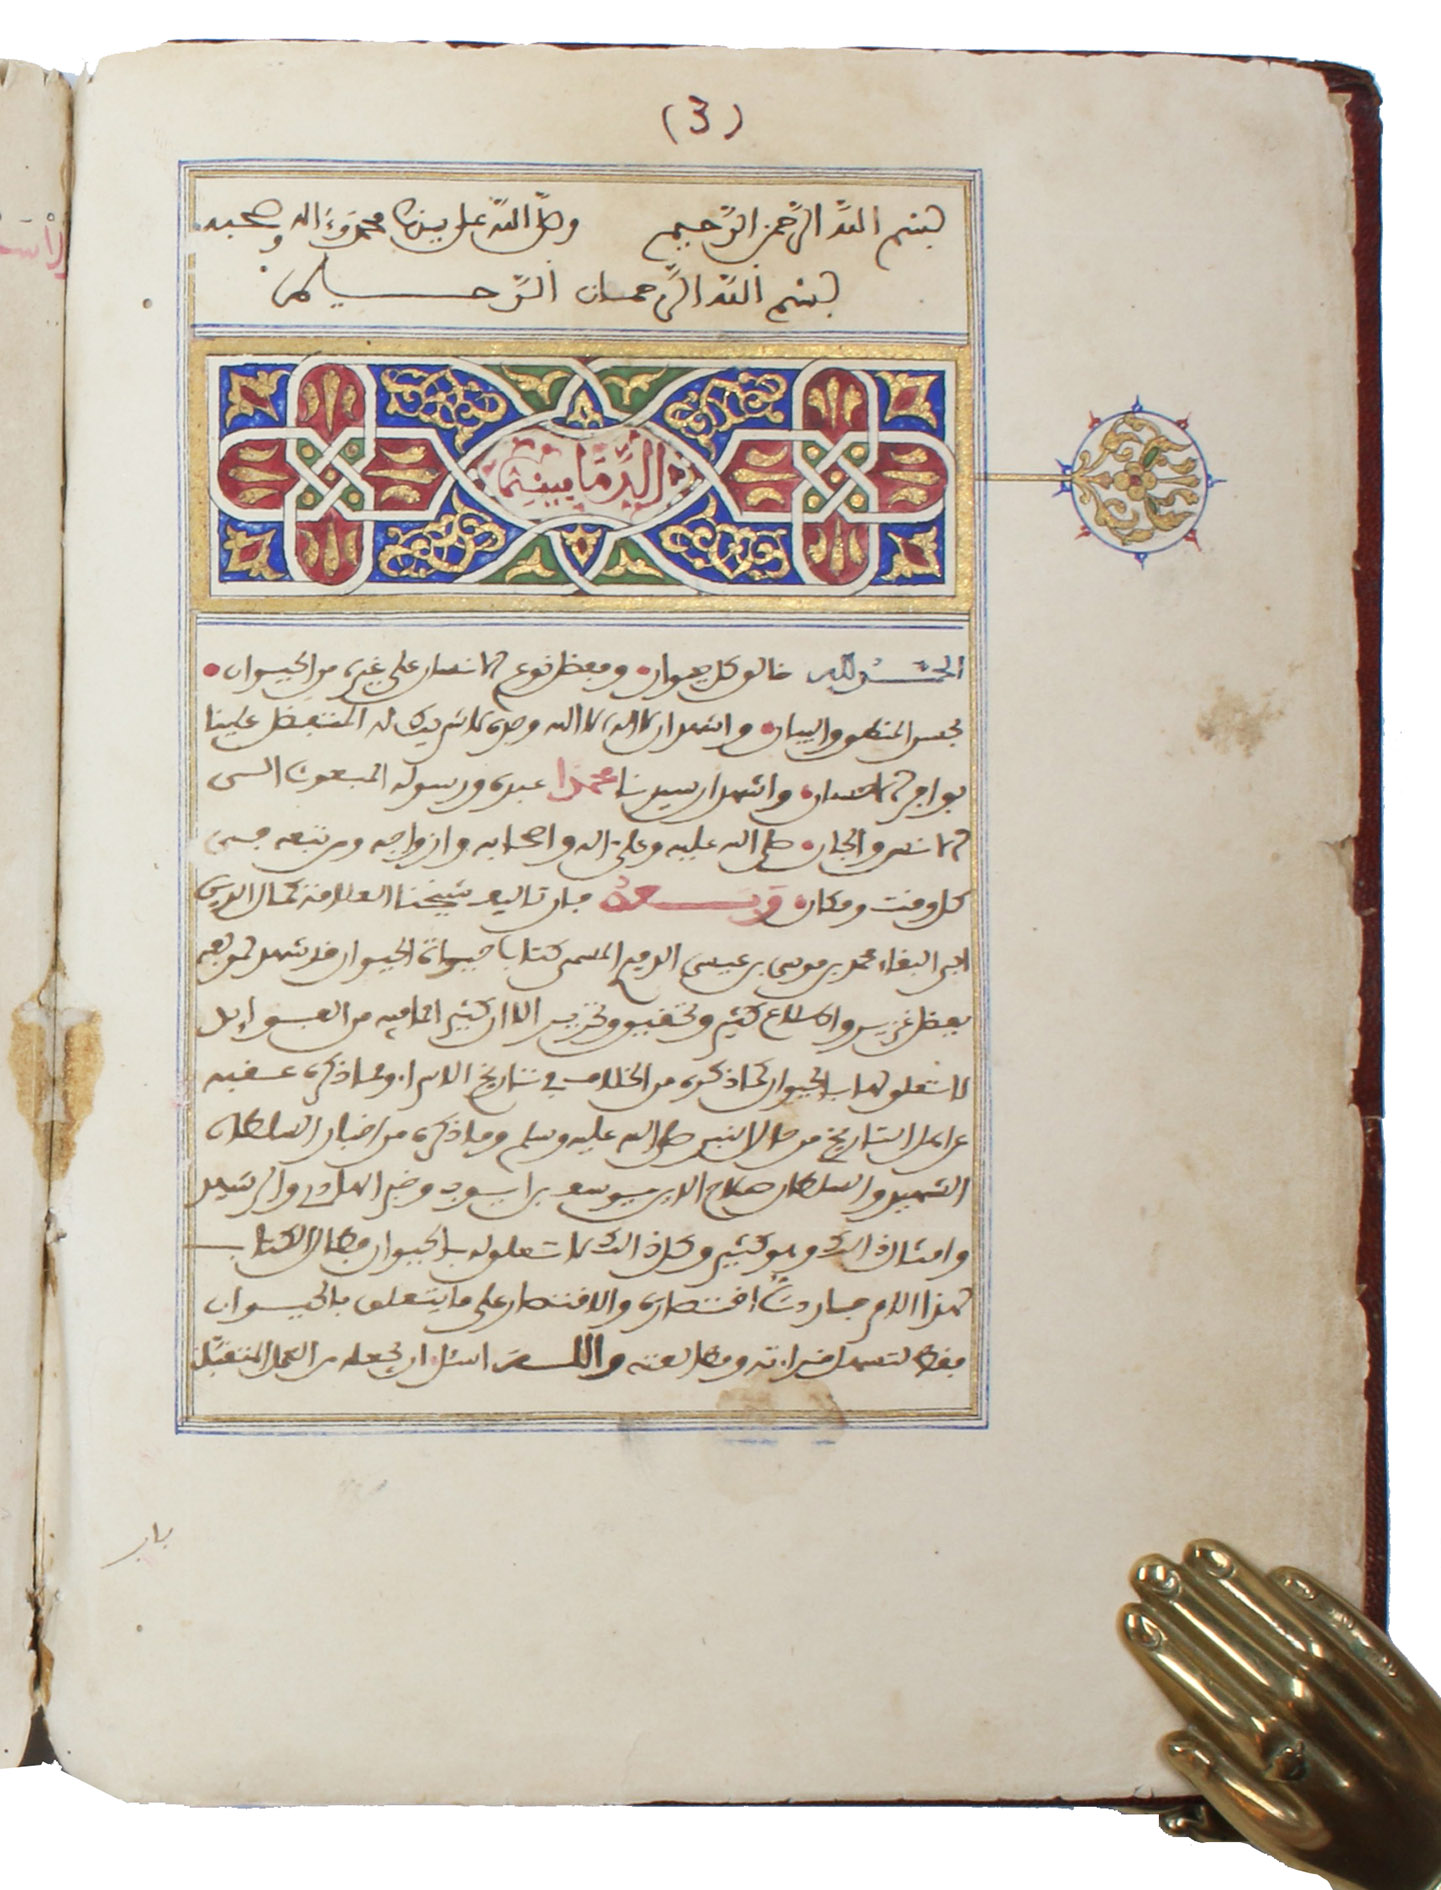 (3)
بسم الله الرحمن الرحيم وصلى الله على سيدنا محمد وءاله وصحبه
بسم الله الرحمان الرحيم
الدمامينية
الحمد لله خالق كل حيوان ومفضل نوع الانسان على غيره من الحيوان
بحسن المنطق والبيان واشهد ان لا اله الا الله وحده لا شريك له المتفضل علينا
بوافر الاحسان واشهد ان سيدنا محمدا عبده ورسوله المبعوث الى
الانس والجان صلى الله عليه وعلى اله واصحابه وازواجه ومن تبعه في
كل وقت ومكان وبعد فان تاليف شيخنا العلامة كمال الدين
ابي البقاء محمد بن موسى بن عيسى الدميري المسمى كتاب حيوة الحيوان قد شهد لمولفه
بفضل غزير واطلاع كثير وتحقيق وتحرير الا ان كثيرا مما فيه من الفوايد
لا تتعلق له بالحيوان كما ذكره من الخلاف في تاريخ وما ذكره
عن اهل التاريخ من صلى الله عليه وسلم وما ذكره من اخبار السلطان
الشهيد والسلطان صلاح الدين يوسف بن ايوب والرشيد
وامثال ذلك وهو كثير وكل ذلك لا تتعلق له بالحيوان فطال الكتاب
لهذا الامر فاردت اختصاره والاقتصار على ما يتعلق بالحيوان
فقط لتسهل قراءته ومطالعته والله اسئل ان يجعله من العمل المتقبل